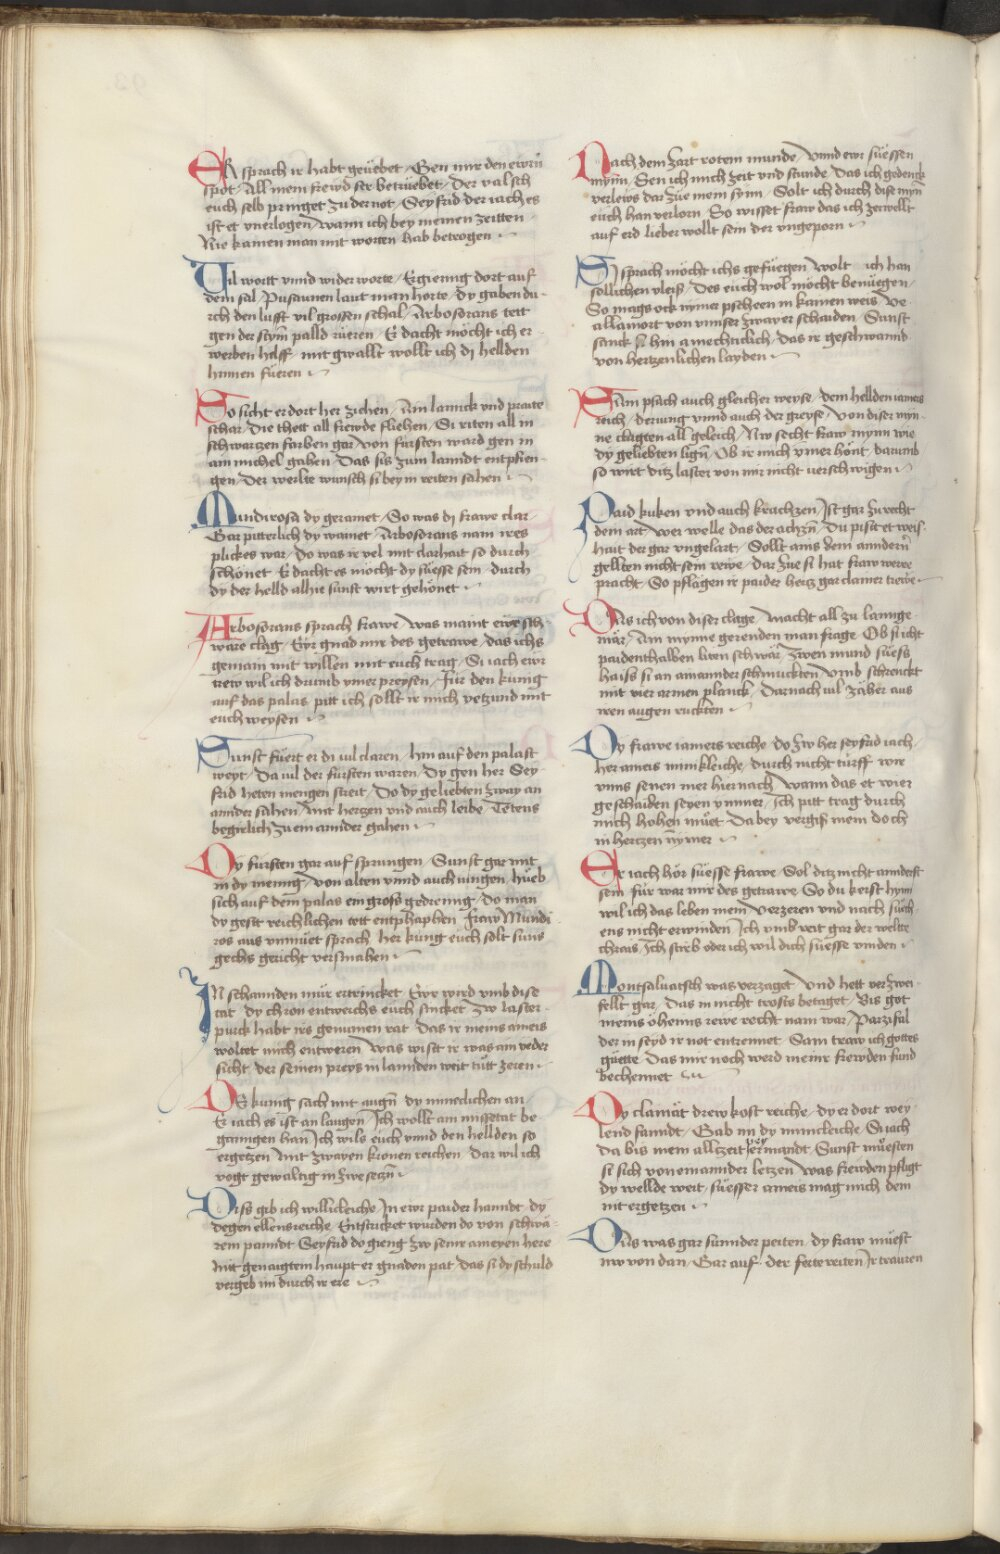 ER sprach ir habt geüebet / Gen mir den ewrn
spot / All mein frewd ser betrüebet / Der val sch
euch selb pringet zu der not / Seyfrid der iach es
ist et vnerlogen / wann ich bey meinen zeitten
Nie kainen man mit worten hab betrogen
Vil wort vnnd wider worte / Ergienng dort auf
dem sal / Pusaunen laut man horte / dy gaben du-
rch den lufft vil grossen schal / Arbosorans tett
gen der stym palld rüeren / Er dacht möcht ich er
werben hilff / mit gwallt wollt ich di hellden
hinnen füeren
So sicht er dort her ziehen / Ain lannck vnd praite
schar / Die thett all frewde fliehen / Si riten all in
schwartzen farben gar / Von fürsten ward gen in
ain michel gahen / Das sis zum lanndt entpfien-
gen / Der werlte wunsch si bey in reiten sahen
Mundirosa dy geramet / So was di frawe clar
Gar pitterlich dy wainet / Arbosorans nam ires
plickes war / Do was ir vel mit clarhait so durch
schönet / Er dacht es möcht dy süesse sein / durch
dy der helld alhie sunst wirt gehönet
Arbosorans sprach frawe / Was maint ewr sch-
ware clag / Eyr gnad mir des getrawe / das ichs
gemain mit willen mit euch trag / Si iach ewr
trew wil ich drumb ymer preysen / Für den kunig
auf das palas / pitt ich sollt ir mich yetzund mit
euch weysen
Sunst füert er di vil claren / hin auf den palast
weyt / Da vil der fürsten waren / Dy gen her Sey-
frid heten mengen streit / Do dy geliebten zway an
annder sahen / Mit hertzen vnd auch leibe / Tetens
begirlich zu ein annder gahen
Dy fürsten gar auf sprungen / Sunst gar mit
in dy menig / von alten vnnd auch iungen / hueb
sich auf dem palas ein gross gedrenng / Do man
dy gesst reichlichen tett entphaphen / Fraw Mundi
ros aus vnmuet sprach / her kung euch solt suns
gechs gericht versmahen
IN schannden mür ertrincket / Eyr wird vmb dise
tat / dy chron entweichs euch sincket / Zw laster
purck habt irs genumen rat / Das ir meins ameis
woltet mich entweren / Was wisst ir was ain yeder
sicht / der seinen preys in lannden weit tuet zeren
Der kunig sach mit augn / dy minneclichen an
Er iach es ist an laugen / Ich wollt ain missetat be
ganngen han / Ich wils euch vnnd den hellden so
ergetzen / Mit zwayen kronen reichen / Dar wil ich
vogt gewaltig in zwe setzn
Diss gib ich willicleiche / In ewr paider hanndt / dy
degen ellensreiche / Entstricket wurden do von schwä-
rem pannde / Seyfrid do gieng zw seinr ameyen here
Mit genaigtem haupt er gnaden pat / das si dy schuld
vergeb im durch ir ere
Nach dem zart rotem munde / Vnnd ewr süessen
mynn / Sen ich mich zeit vnd stunde / Das ich gedenck
verleiws dar zue mein synn / Solt ich durch dise myn
euch han verlorn / So wisset fraw das ich zerwellt
auf eid lieber wollt sein der vngeporn
Si sprach möcht ichs gefuegen / wolt ich han
sollichen vleiss / Des euch wol möcht benüegen
So mags ock nymer pscheen in kainen weis / Ve-
allamort von vnnser zwayer schaiden / Sunst
sanck si hin amechticlich / Das ir geschwannd
von hertzenlichen layden
Sam psach auch gleicher weyse / dem hellden iamers
reich / der iung vnnd auch der greyse / Von diser myn-
ne clagten all geleich / Nw secht fraw mynn wie
dy geliebten lign / Ob ir mich ymer hönt / darumb
so wirt ditz laster von mir nicht verschwigen
Paid kuken vnd auch krachzen / Ist gar zu recht
dem art / wer welle das der achzn / Du pisst et weis-
hait der gar vngelart / Sollt ains dem anndern
gellten nicht sein rewe / Dar zue si hat fraw werre
pracht / So pflagen ir paider hertz gar clamer trewe
Das ich von diser clage / Macht all zu lannge
mär / Ain mynne gerenden man frage / Ob si icht
paidenthalben liten schwär / Zwen mund süess
haiss si an annander schmuckten / Vnnd schrenckt
mit vier armen planck / Darnach vil zäher aus
iren augen ruckten
Dy frawe iamers reiche / do zw her seyfrid iach
her ameis minnkleiche / durch nicht türff wir
vnns senen mer hier nach / Wann das et wier
geschaiden seyen ymmer / Ich pitt trag durch
mich hohen muet / Da bey vergiss mein doch
in hertzen nymer
Er iach hör süesse frawe / Sol ditz nicht annderst
sein / für war mir des getrawe / So du kerst hynn
wil ich das leben mein / Verzeren vnd nach such-
ens nicht erwinden / Ich vmb reit gar der wellte
chrais / Ich streb oder ich wil dich süesse vinden
Montsaluatsch was verzaget / Vnd hett verzwei-
fellt gar / Das in nicht trosts betaget / Bis got
meins öheims rewe recht nam war / Parzifal
der in seyd ir not entrennet / Sam traw ich gottes
güette / Das mir noch werd meinr frewden fund
bechennet
Dy clainät drew kost reiche / dy er dort wey-
lend fanndt / Gab im dy minncleiche / Si iach
da bis mein allzeit per ermandt / Sunst muesten
si sich von einannder letzen / was frewden pfligt
dy wellde weit / süesser ameis mag mich dem
nit ergetzen
Das was gar sunnder peiten / dy fraw muest
nw von dan / Gar auf der fertte reiten / Ir trauren